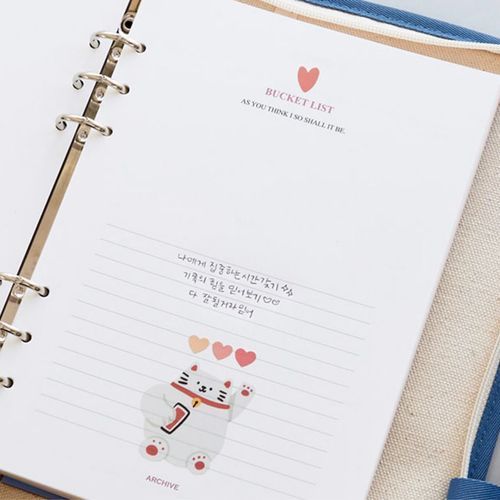 BUCKET LIST
AS YOU THINK I SO SHALL IT BE.
나에게 집중하는시간갖기
기록의 힘을 믿어보기♡♡
다 잘될거라믿어
ARCHIVE